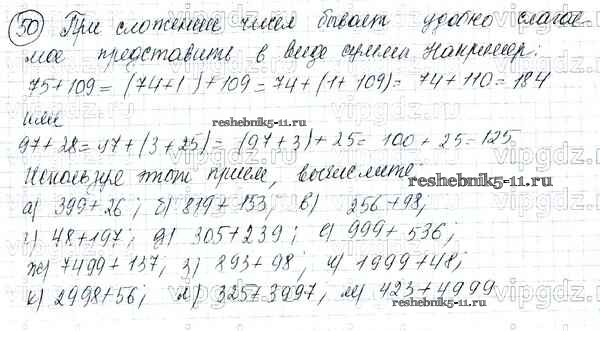 50 При сложении чисел бывает удобно слагае-
мое представить в виде суммы. Например:
75+109 = (74+1)+109 = 74+(1+109) = 74+110 = 184
или
reshebnik5-11.ru
97+28 = 97+(3+25) = (97+3)+25 = 100+25 = 125
Используя этот прием, вычислите:
reshebnik5-11.ru
а) 399+26; б) 819+153; в) 256+98;
г) 48+197; д) 305+239; е) 999+536;
ж) 7499+137; з) 893+98; и) 1999+48;
к) 2998+56; л) 325+3997, м) 423+4999
reshebnik5-11.ru